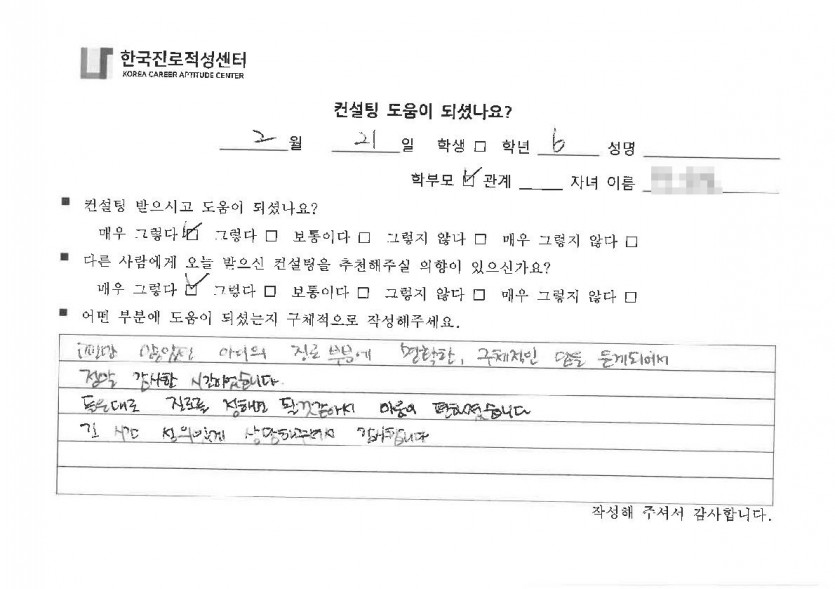 한국진로적성센터
KOREA CAREER APTITUDE CENTER
컨설팅 도움이 되셨나요?
2 월 21 일 학생 □ 학년 6 성명
학부모 ☑ 관계 자녀 이름
■ 컨설팅 받으시고 도움이 되셨나요?
매우 그렇다 ☑ 그렇다 □ 보통이다 □ 그렇지 않다 □ 매우 그렇지 않다 □
■ 다른 사람에게 오늘 받으신 컨설팅을 추천해주실 의향이 있으신가요?
매우 그렇다 ☑ 그렇다 □ 보통이다 □ 그렇지 않다 □ 매우 그렇지 않다 □
■ 어떤 부분에 도움이 되셨는지 구체적으로 작성해주세요.
아이의 진로 부분에 명확한, 구체적인 답을 듣게되어서
정말 감사한 시간이었습니다.
들은대로 진로를 정해도 될것같아서 마음이 편해졌습니다
긴 시간 성의있게 상담해주셔서 감사합니다
작성해 주셔서 감사합니다.